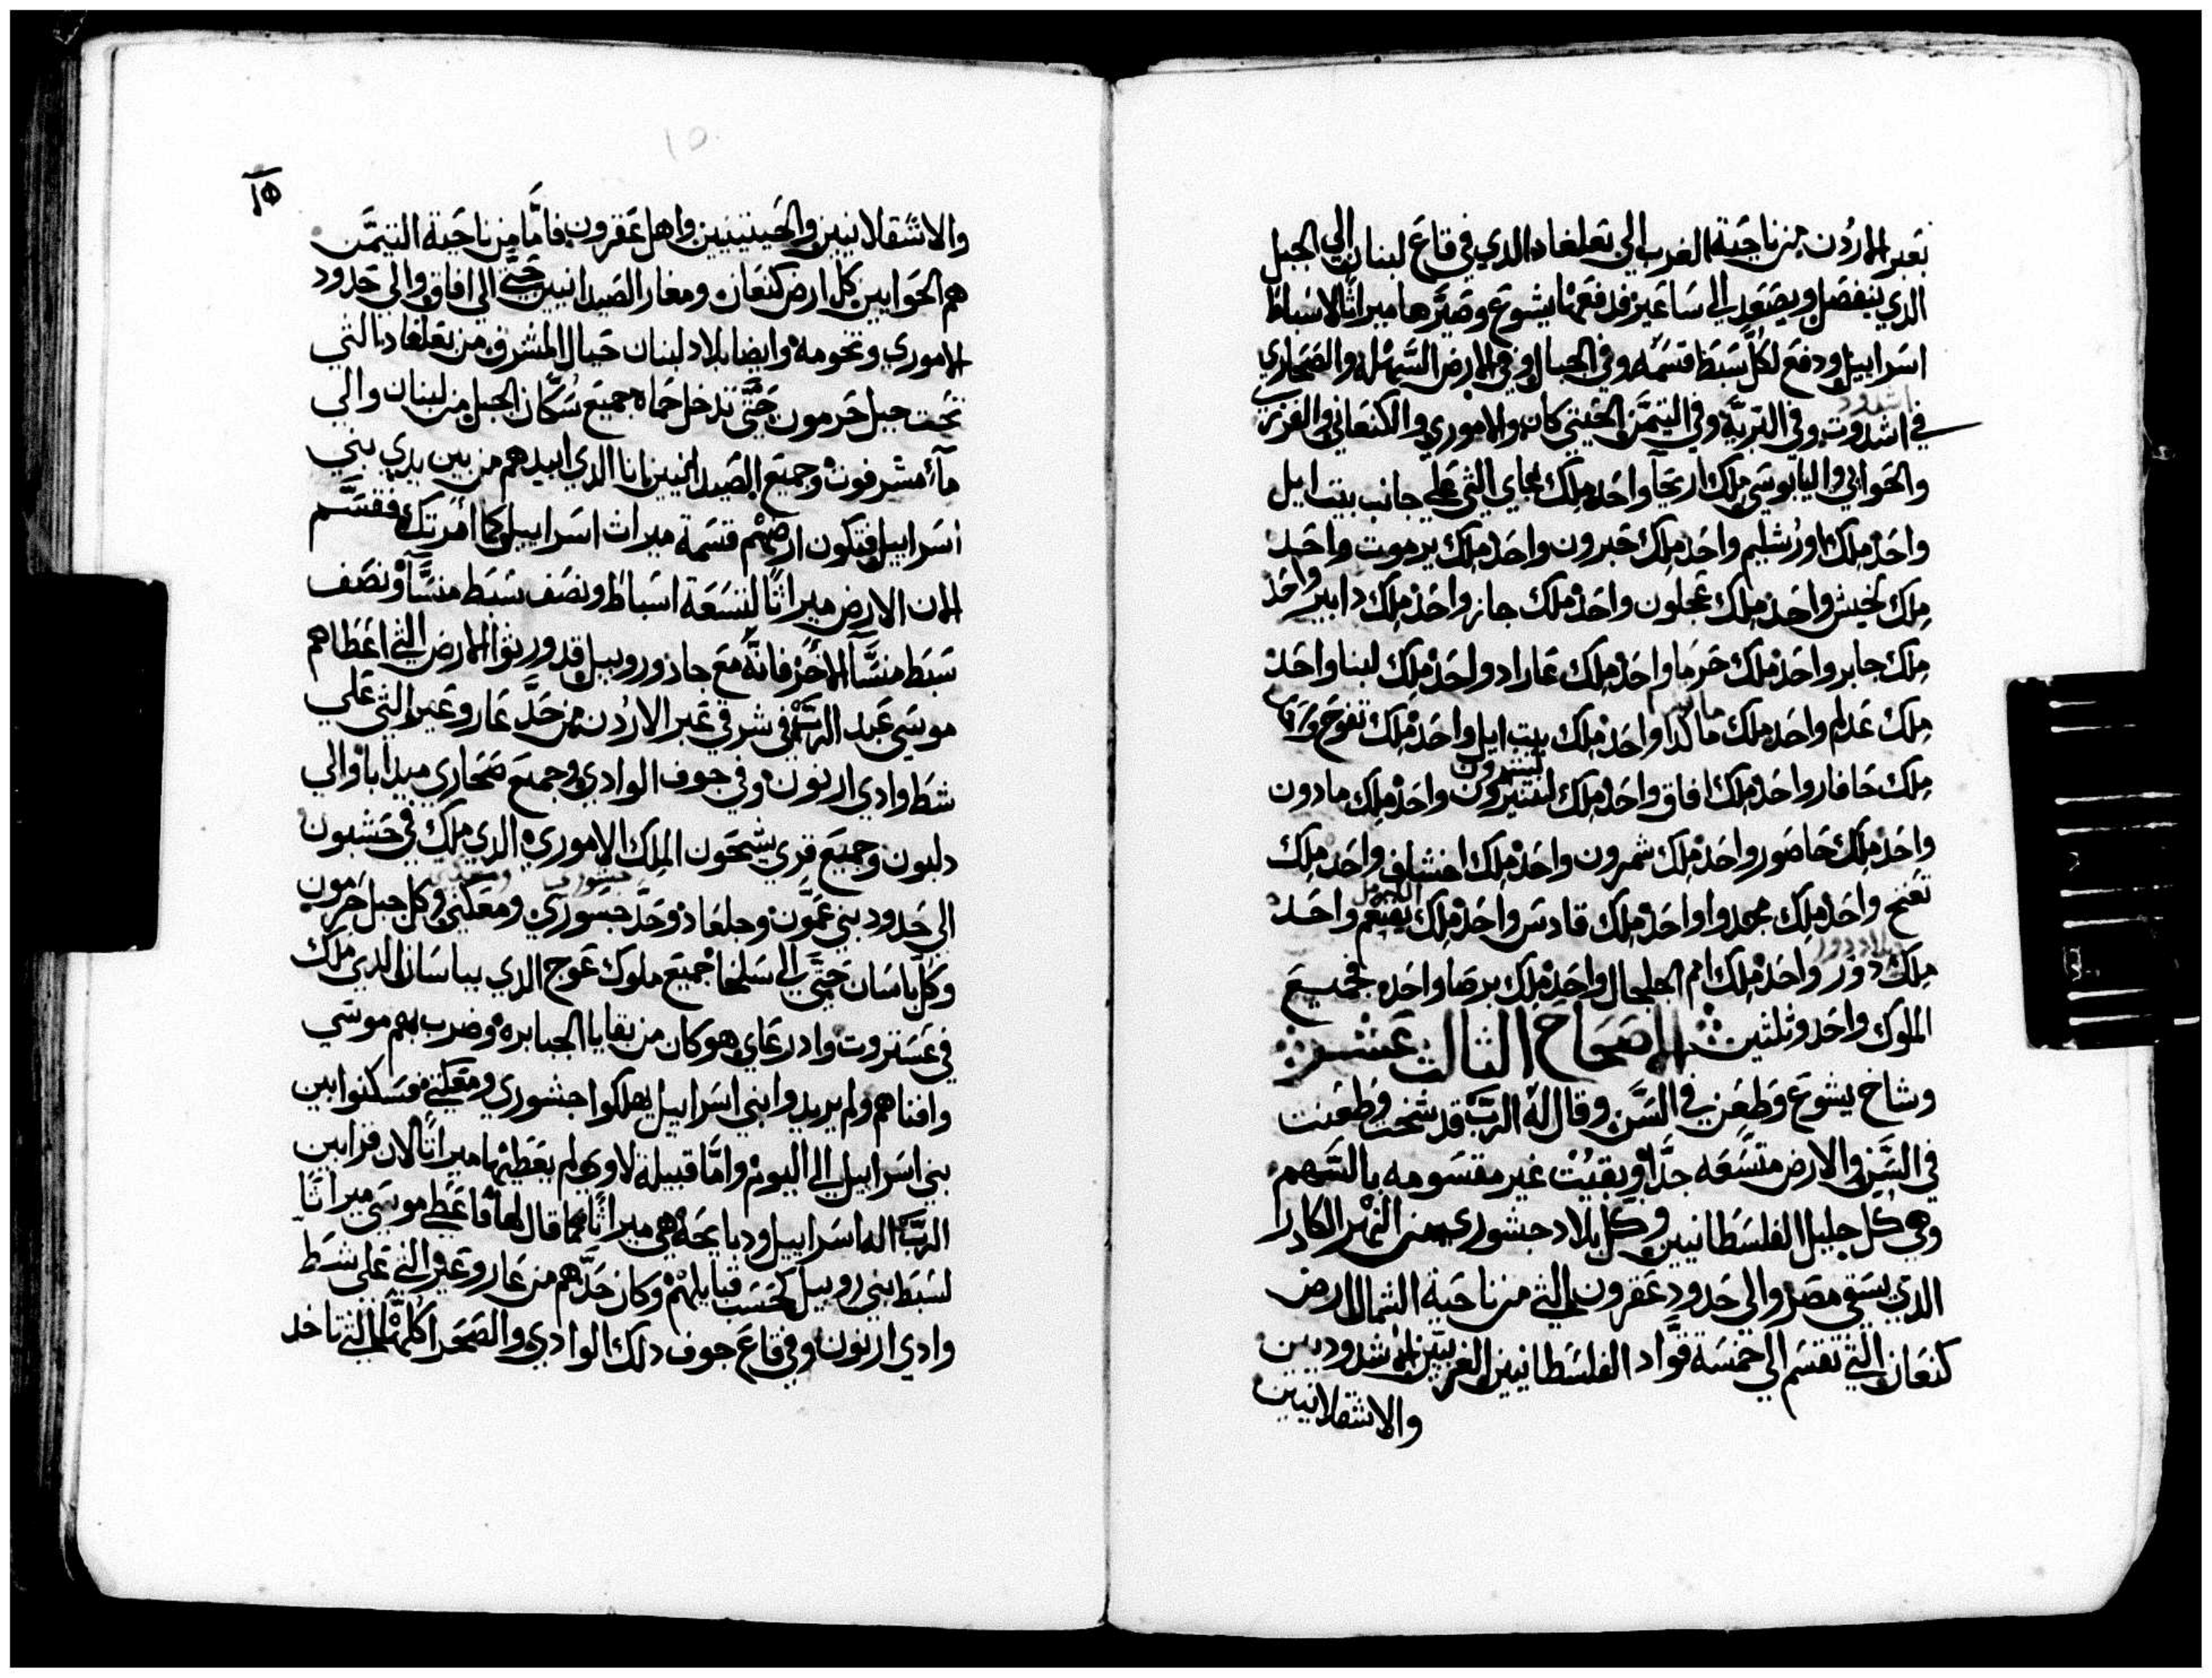 بعبر الاردن من ناحية الغرب الي بعلغاد الدي في قاع لبنان الي الجبل
الدي ينفصل ويصعد الي ساعير فدفعها يشوع وصيرها ميراثا لاسباط
اسراييل ودفع لكل سبط قسمه وفي الجبال وفي الارض السهله والصحاري
في اشدوت وفي البرية وفي التيمن الحيتي كان والاموري والكنعاني والفرزي
والحوايي واليابوسي ملك اريحا واحد ملك عاي التي علي جانب بيت ايل
واحد ملك اورشليم واحد ملك حبرون واحد ملك يرموت واحد
ملك لخيش واحد ملك عجلون واحد ملك جازر واحد ملك دابير واحد
ملك جابر واحد ملك حرما واحد ملك عاراد واحد ملك لبنا واحد
ملك عدلم واحد ملك ماكدا واحد ملك بيت ايل واحد ملك تفوح واحد
ملك حافار واحد ملك افاق واحد ملك لشرون واحد ملك مادون
واحد ملك حاصور واحد ملك شمرون واحد ملك اخشاف واحد ملك
تعنح واحد ملك مجدوا واحد ملك قادس واحد ملك يقنعم واحد
ملك دور واحد ملك امم الجلجال واحد ملك برصا واحد فجميع
الملوك واحد وثلثين الاصحاح الثالث عشر
وشاخ يشوع وطعن في السن وقال له الرب قد شخت وطعنت
في السن والارض متسعه جدا وبقيت غير مقسومه بالسهم
وهي كل جليل الفلسطانيين وكل بلاد جشوري من النهر الكادر
الدي يسقي مصر والي حدود عقرون التي من ناحية الشمال ارض
كنعان التي تقسم الي خمسة قواد الفلسطانيين الغزيين الاشدوديين
والاشقلانيين
١٥
والاشقلانيين والحيتيين واهل عقرون فاما من ناحية التيمن
هم الحوايين كل ارض كنعان ومغار الصيدانيين حتي الي افاق والي حدود
الاموري وتخومه وايضا بلاد لبنان حيال المشرق من بعلغاد التي
تحت جبل حرمون حتي تدخل حماه جميع سكان الجبل من لبنان والي
ماء مشرفوت وجميع الصيدانيين انا الدي ابيدهم من بين يدي بني
اسراييل فتكون ارضهم قسمة ميراث اسراييل كما امرتك فقسم
الان الارض ميراثا لتسعة اسباط ونصف سبط منسا ونصف
سبط منسا الاخر فانه مع جاذ وروبيل قد ورثوا الارض التي اعطاهم
موسي عبد الرب في شرقي عبر الاردن من حد عار وعير التي علي
شط وادي ارنون وفي جوف الوادي وجميع صحاري ميدابا والي
ديبون وجميع قري سيحون الملك الاموري الدي ملك في حشبون
الي حدود بني عمون وجلعاذ وحد جسوري ومعكتي وكل جبل حرمون
وكل باسان حتي الي سلخا جميع ملوك عوج الدي بباسان الدي ملك
في عستروت وادرعاي هو كان من بقايا الجبابره وضرب بهم موسي
وافناهم ولم يريدوا بني اسراييل يهلكوا جشوري ومعكتي فسكنوا بين
بني اسراييل الي اليوم واما قبيلة لاوي لم يعطيها ميراثا لان قرابين
الرب اله اسراييل ودبايحه هي ميراثا كما قال لها فاعطي موسي ميراثا
لسبط بني روبيل كحسب قبايلهم وكان حدهم من عار وعير التي علي شط
وادي ارنون وفي قاع جوف دلك الوادي والصحرا كلها التي تاخد